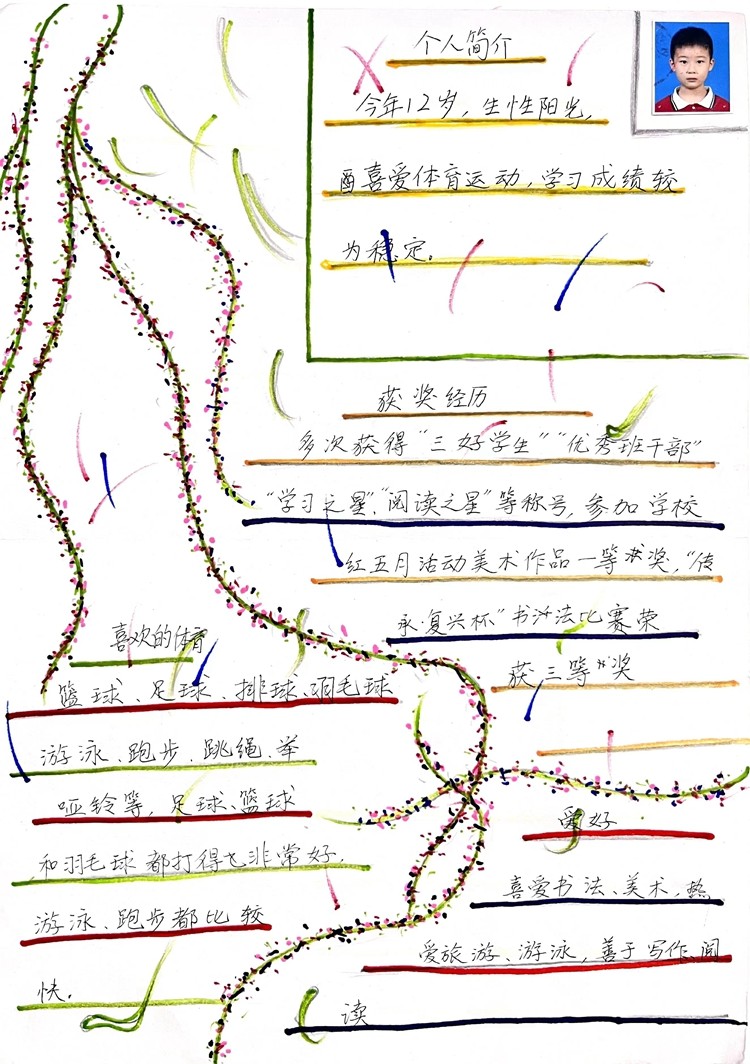 个人简介
今年12岁，生性阳光，
喜爱体育运动，学习成绩较
为稳定。
获奖经历
多次获得“三好学生”“优秀班干部”
“学习之星”，“阅读之星”等称号，参加学校
红五月活动美术作品一等奖，“传
承复兴杯”书法比赛荣
获三等奖
喜欢的体育
篮球、足球、排球、羽毛球
游泳、跑步、跳绳、举
哑铃等，足球、篮球
和羽毛球都打得非常好，
游泳、跑步都比较
快。
爱好
喜爱书法、美术，热
爱旅游、游泳，善于写作、阅
读